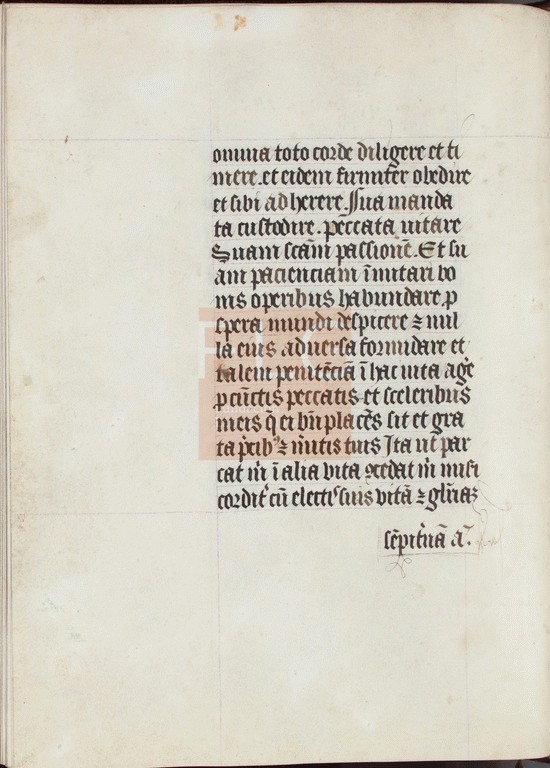 omnia toto corde diligere et ti
mere. et eidem firmiter obedire
et sibi adherere. Sua manda
ta custodire. peccata uitare
Suam scām passionē. Et su
am pacienciam īmitari bo
nis operibus habundare. ꝓ
spera mundi despicere ⁊ nul
la eius aduersa formidare et
talem penitēciam ī hac uita agē
ꝓ cūctis peccatis et sceleribus
meis q̄ ei bn̄ placēs sit et gra
ta p̄cibꝰ ⁊ mītis tuis Ita ut par
cat m̄ ī alia vita ꝯcedat m̄ misi
cordit̄ cū electis suis vitā ⁊ glīaꝫ
sēpit̄nā a.